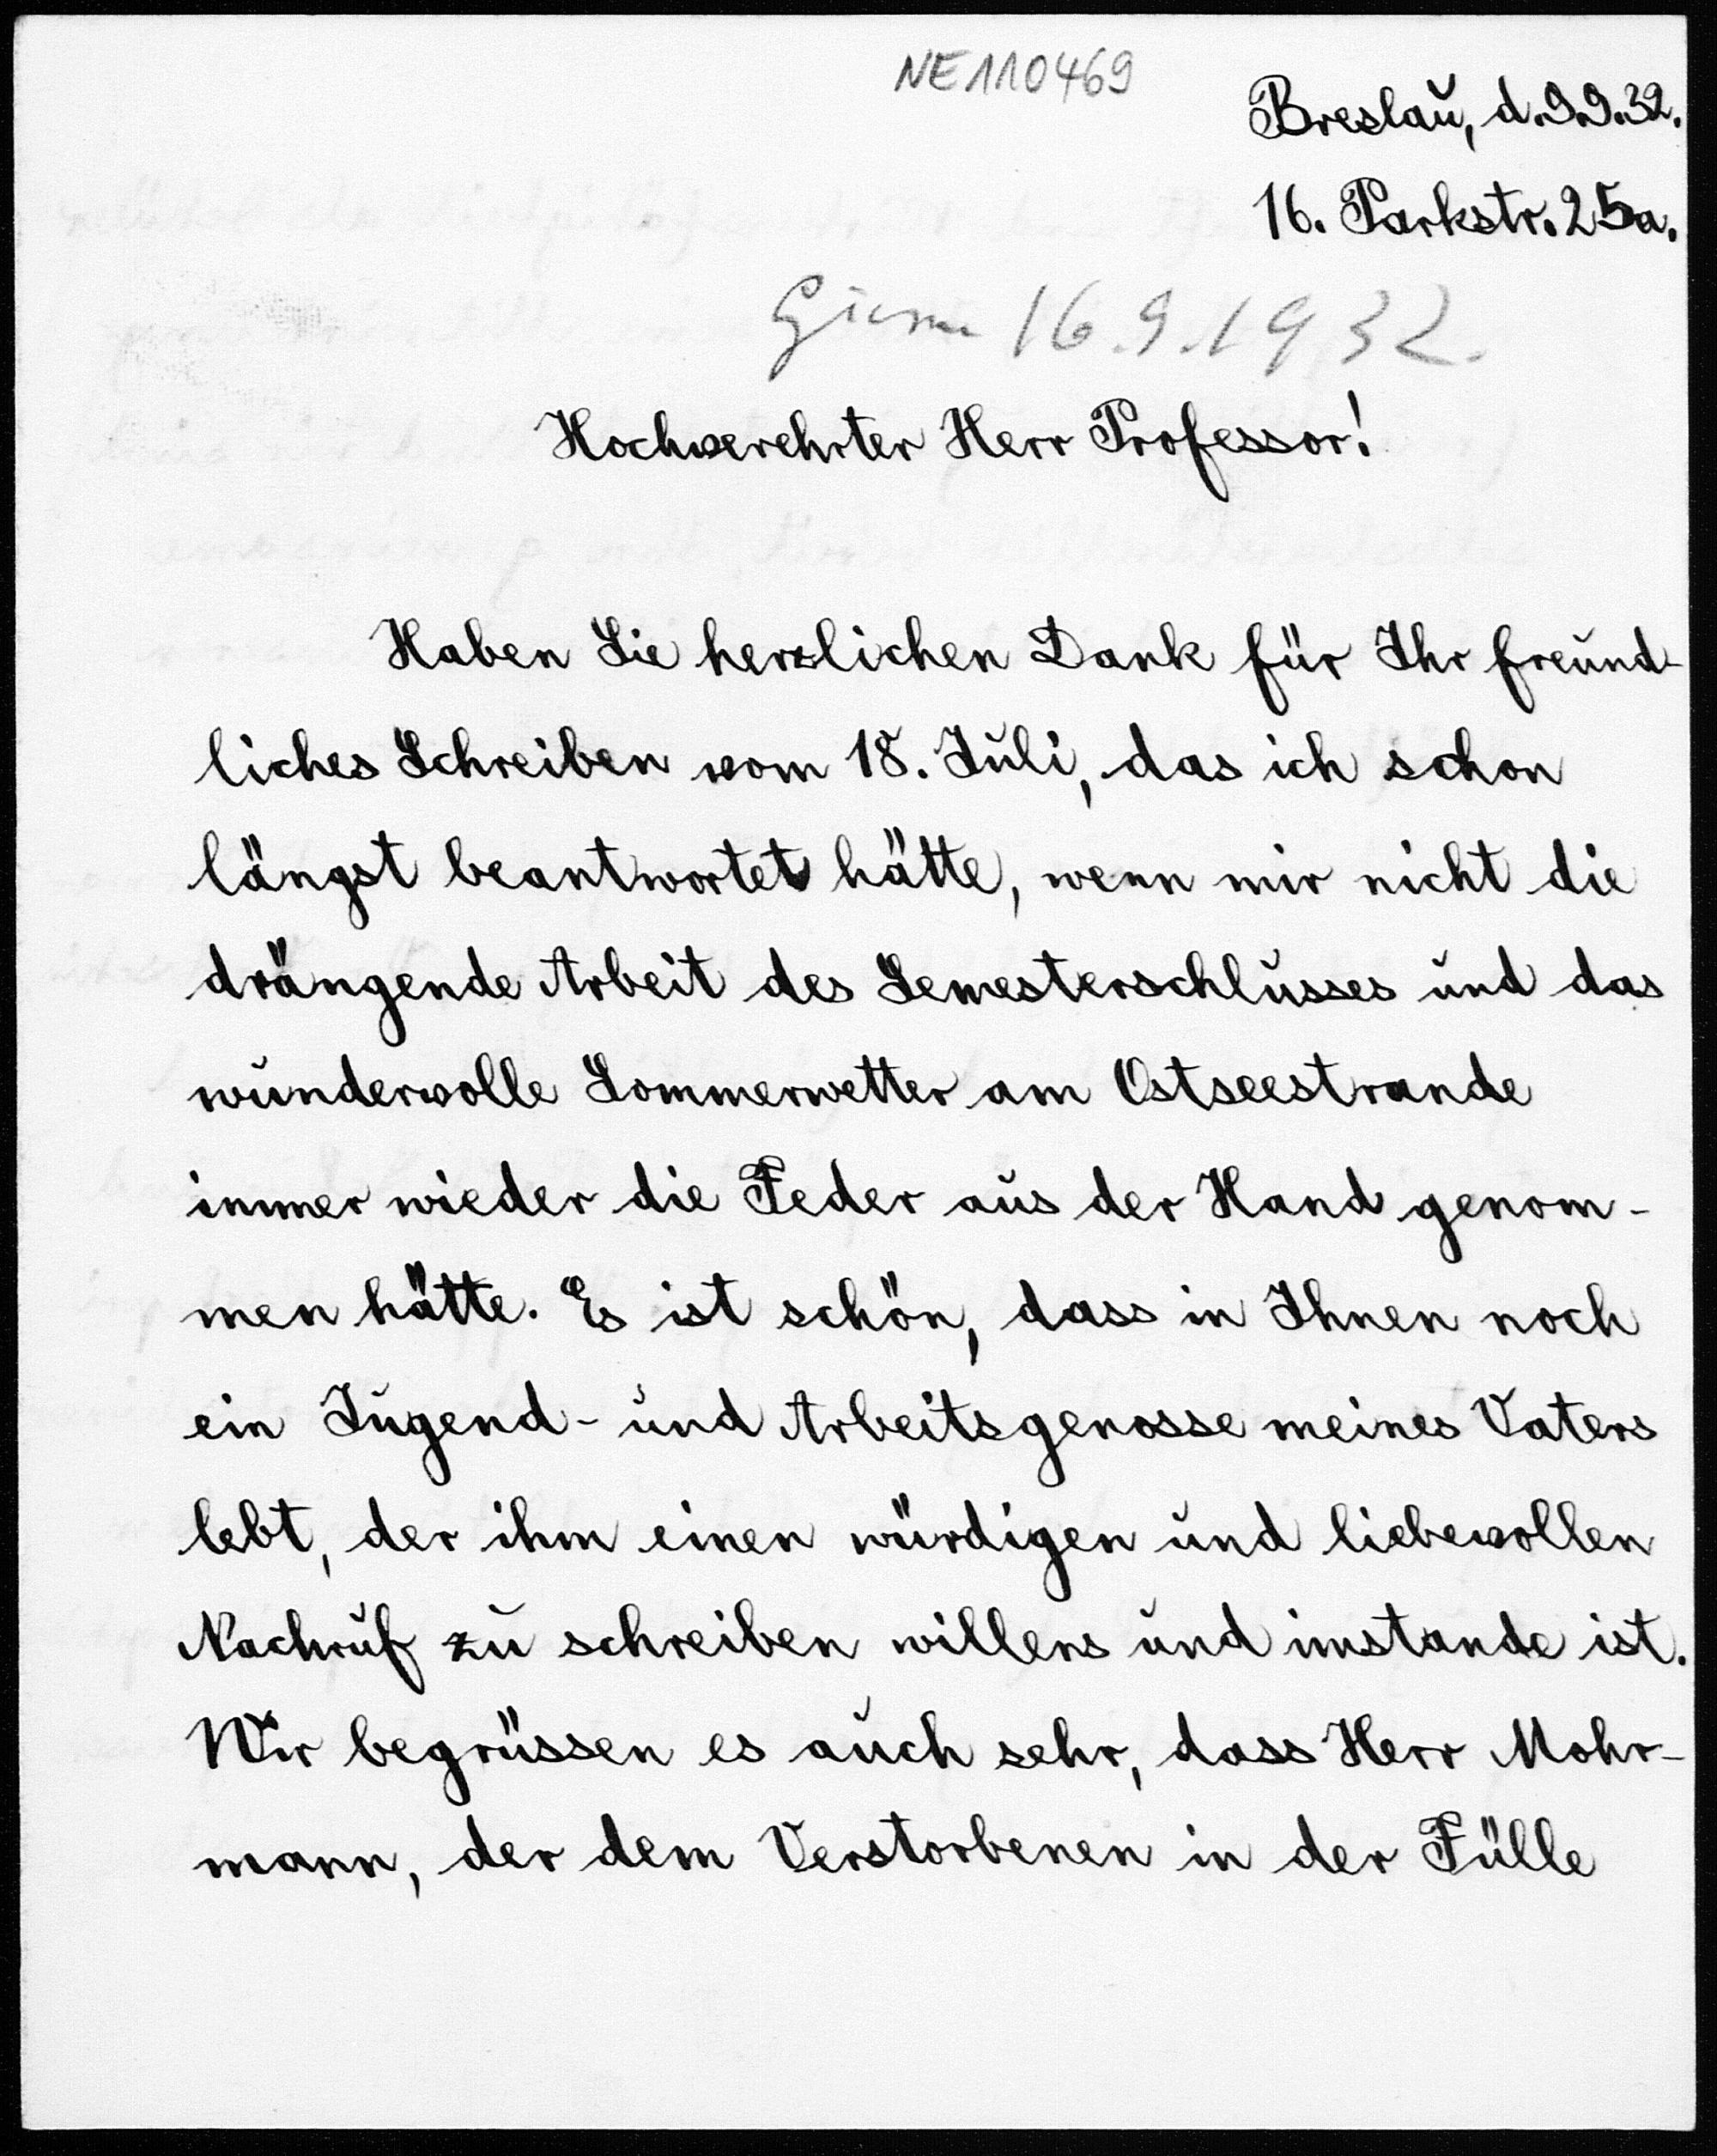 NE110469
Breslau, d. 9.9.32.
16. Parkstr. 25a.
16.9.1932.
Hochverehrter Herr Professor!
Haben Sie herzlichen Dank für Ihr freund-
liches Schreiben vom 18. Juli, das ich schon
längst beantwortet hätte, wenn mir nicht die
drängende Arbeit des Semesterschlusses und das
wundervolle Sommerwetter am Ostseestrande
immer wieder die Feder aus der Hand genom-
men hätte. Es ist schön, dass in Ihnen noch
ein Jugend- und Arbeitsgenosse meines Vaters
lebt, der ihm einen würdigen und liebevollen
Nachruf zu schreiben willens und imstande ist.
Wir begrüssen es auch sehr, dass Herr Mohr-
mann, der dem Verstorbenen in der Fülle